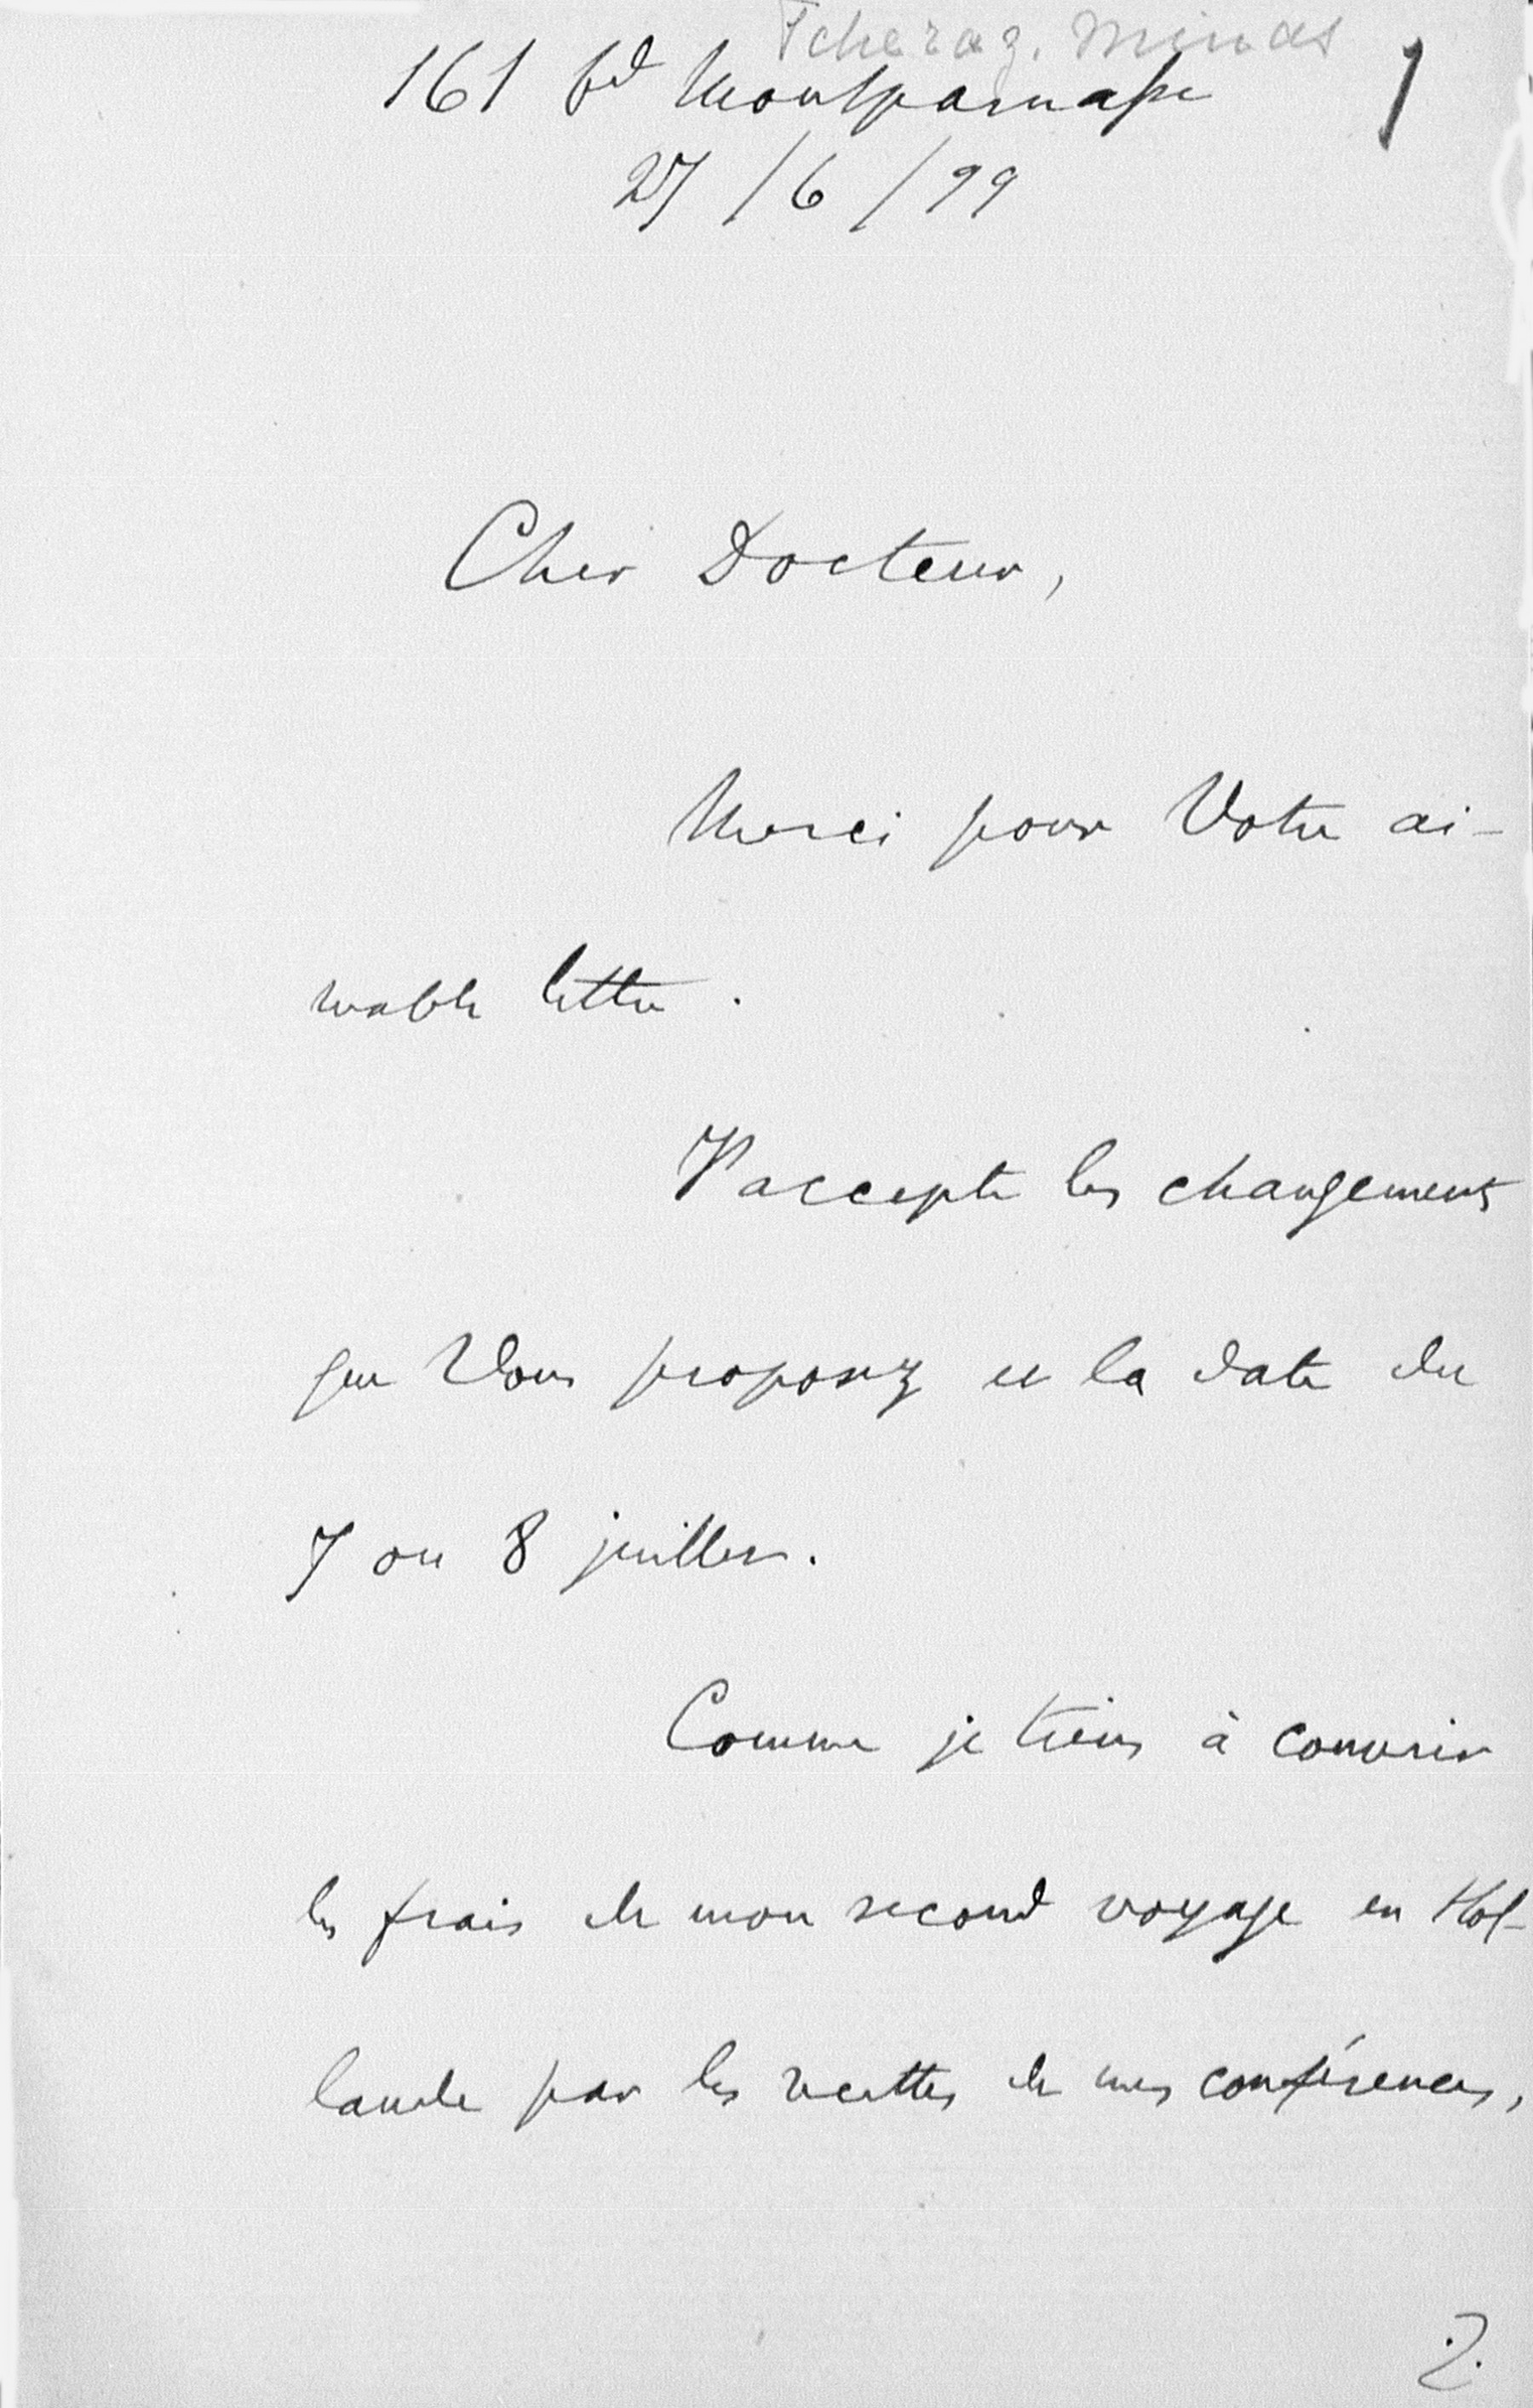 Tcheraz, Minas
161 Bd Montparnasse 1
27/6/99
Cher Docteur,
Merci pour Votre ai-
mable lettre.
J'accepte les changements
que Vous proposez et la date du
7 ou 8 juillet.
Comme je tiens à couvrir
les frais de mon second voyage en Hol-
lande par les recettes de mes conférences,
2.